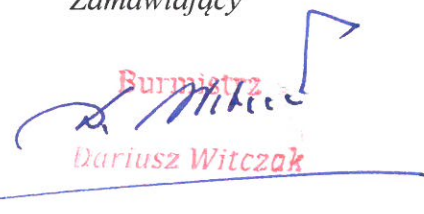 Zamawiający
Burmistrz
Dariusz Witczak